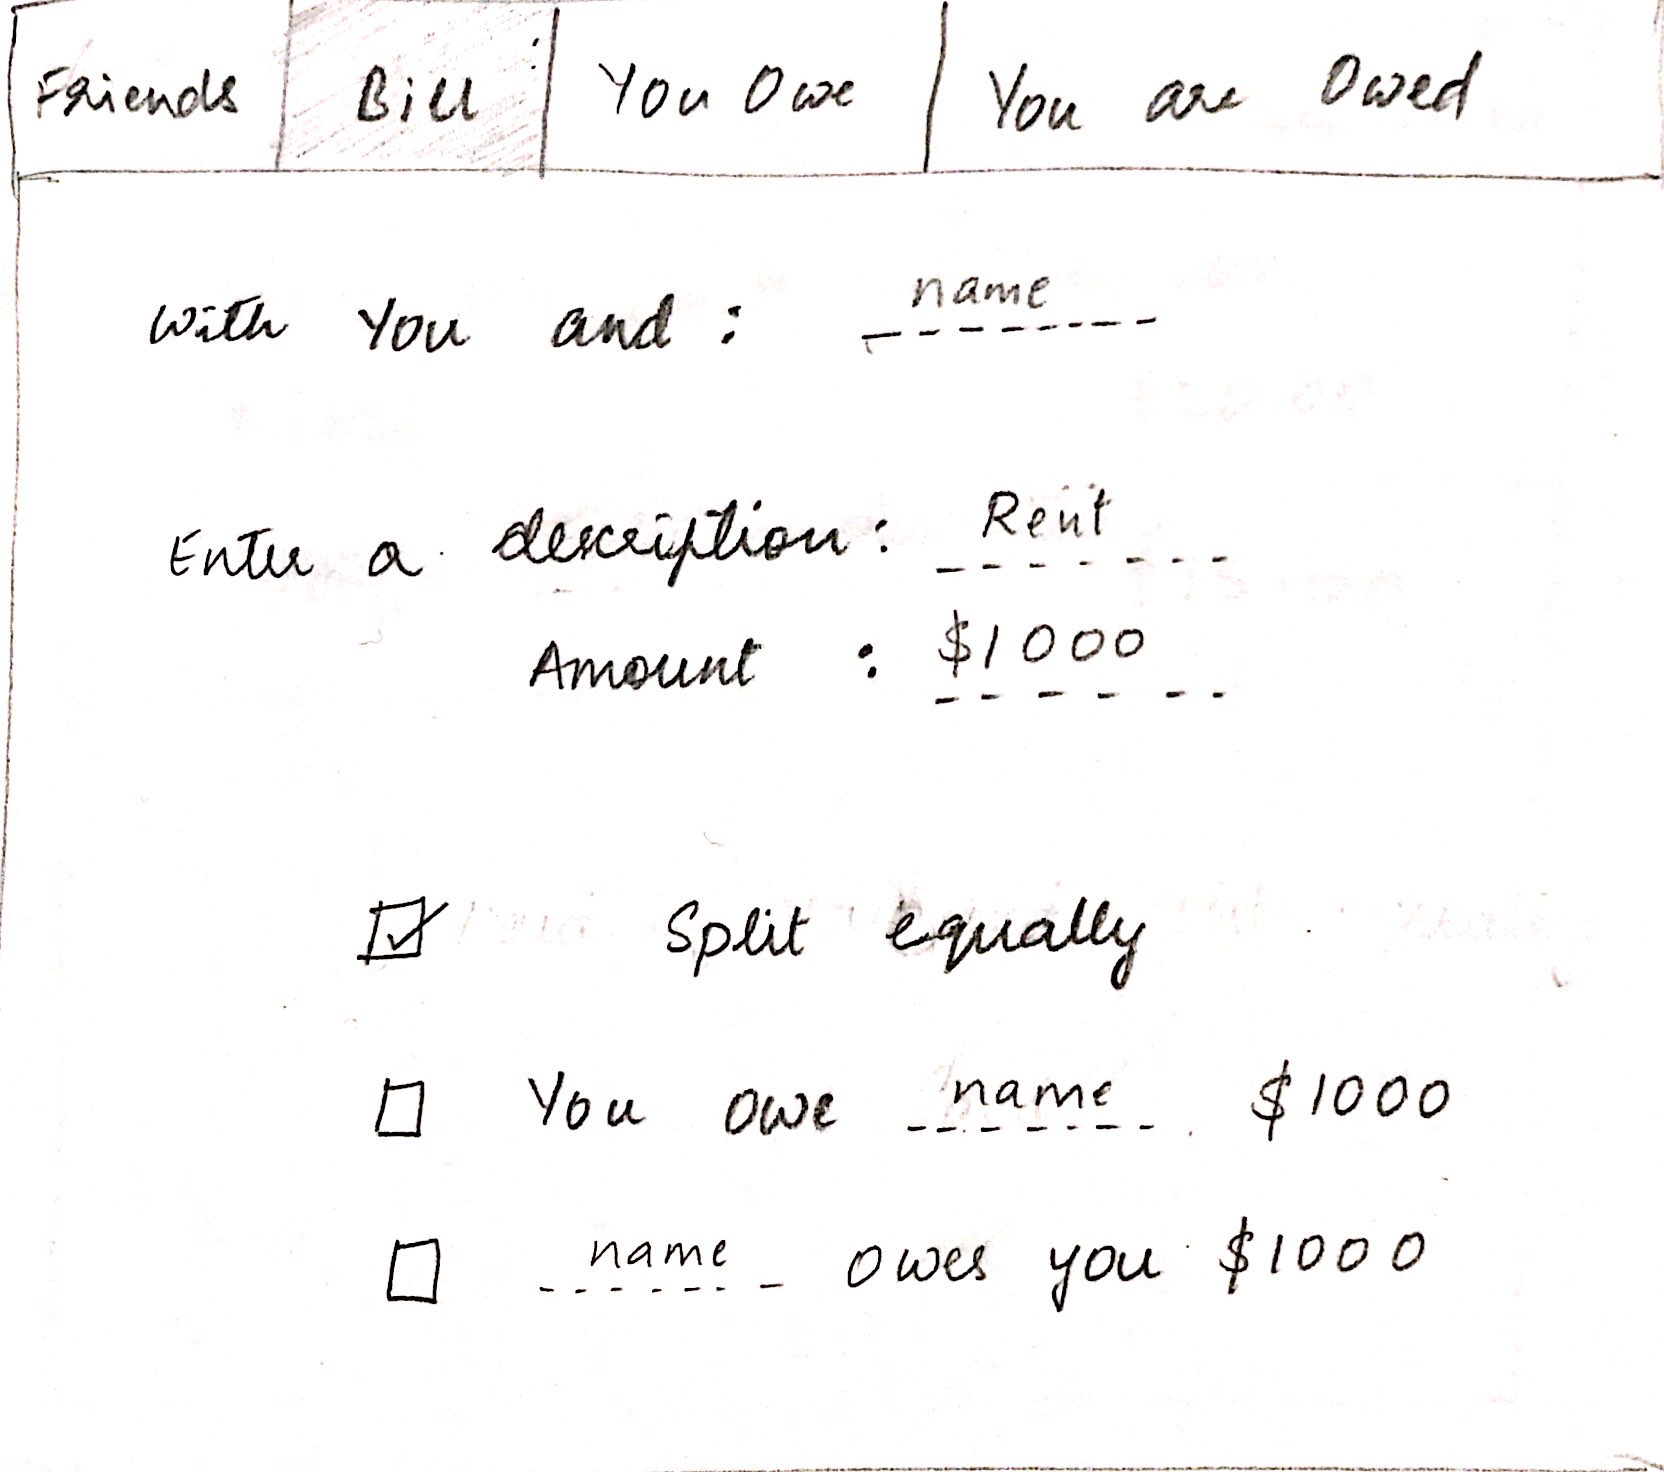 Friends Bill You Owe You are Owed
With You and : name
Enter a description: Rent
Amount : $1000
Split equally
You owe name $1000
name owes you $1000